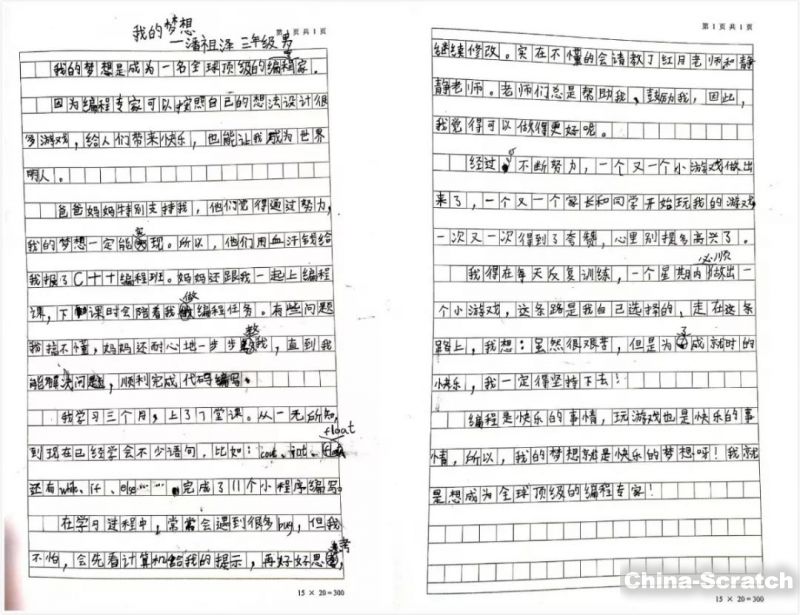 我的梦想
第1页共1页
—潘祖泽 三年级 男
我的梦想是成为一名全球顶级的编程家。
因为编程专家可以按照自己的想法设计很
多游戏，给人们带来快乐，也能让我成为世界
明人。
爸爸妈妈特别支持我，他们觉得通过努力，
我的梦想一定能实现。所以，他们用血汗钱给
我报了C++编程班。妈妈还跟我一起上编程
课，下课时会陪着我做编程任务。有些问题
我搞不懂，妈妈还耐心地一步步 我，直到我
能解决问题，顺利完成代码编写。
我学习三个月，上了7堂课。从一无所知，
到现在已经学会不少语句，比如：cout、int、float
还有while、if、else……完成了11个小程序编写。
在学习过程中，常常会遇到很多bug，但我
不怕，会先看计算机给我的提示，再好好思考，
15 × 20=300
第1页共1页
继续修改。实在不懂的会请教了红月老师和静
静老师。老师们总是帮助我、鼓励我，因此，
我觉得可以做得更好呢。
经过不断努力，一个又一个小游戏做出
来了，一个又一个家长和同学开始玩我的游戏
一次又一次得到了夸赞，心里别提多高兴了。
我得在每天反复训练，一个星期内必须做出一
个小游戏，这条路是我自己选择的，走在这条
路上，我想：虽然很艰苦，但是为了成就时的
快乐，我一定得坚持下去！
编程是快乐的事情，玩游戏也是快乐的事
情，所以，我的梦想就是快乐的梦想呀！我就
是想成为全球顶级的编程专家！
China-Scratch
15 × 20=300